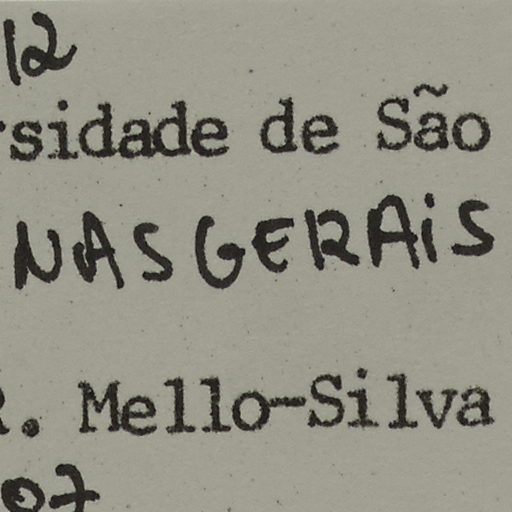 12
sidade de São
NAS GERAIS
R. Mello-Silva
07